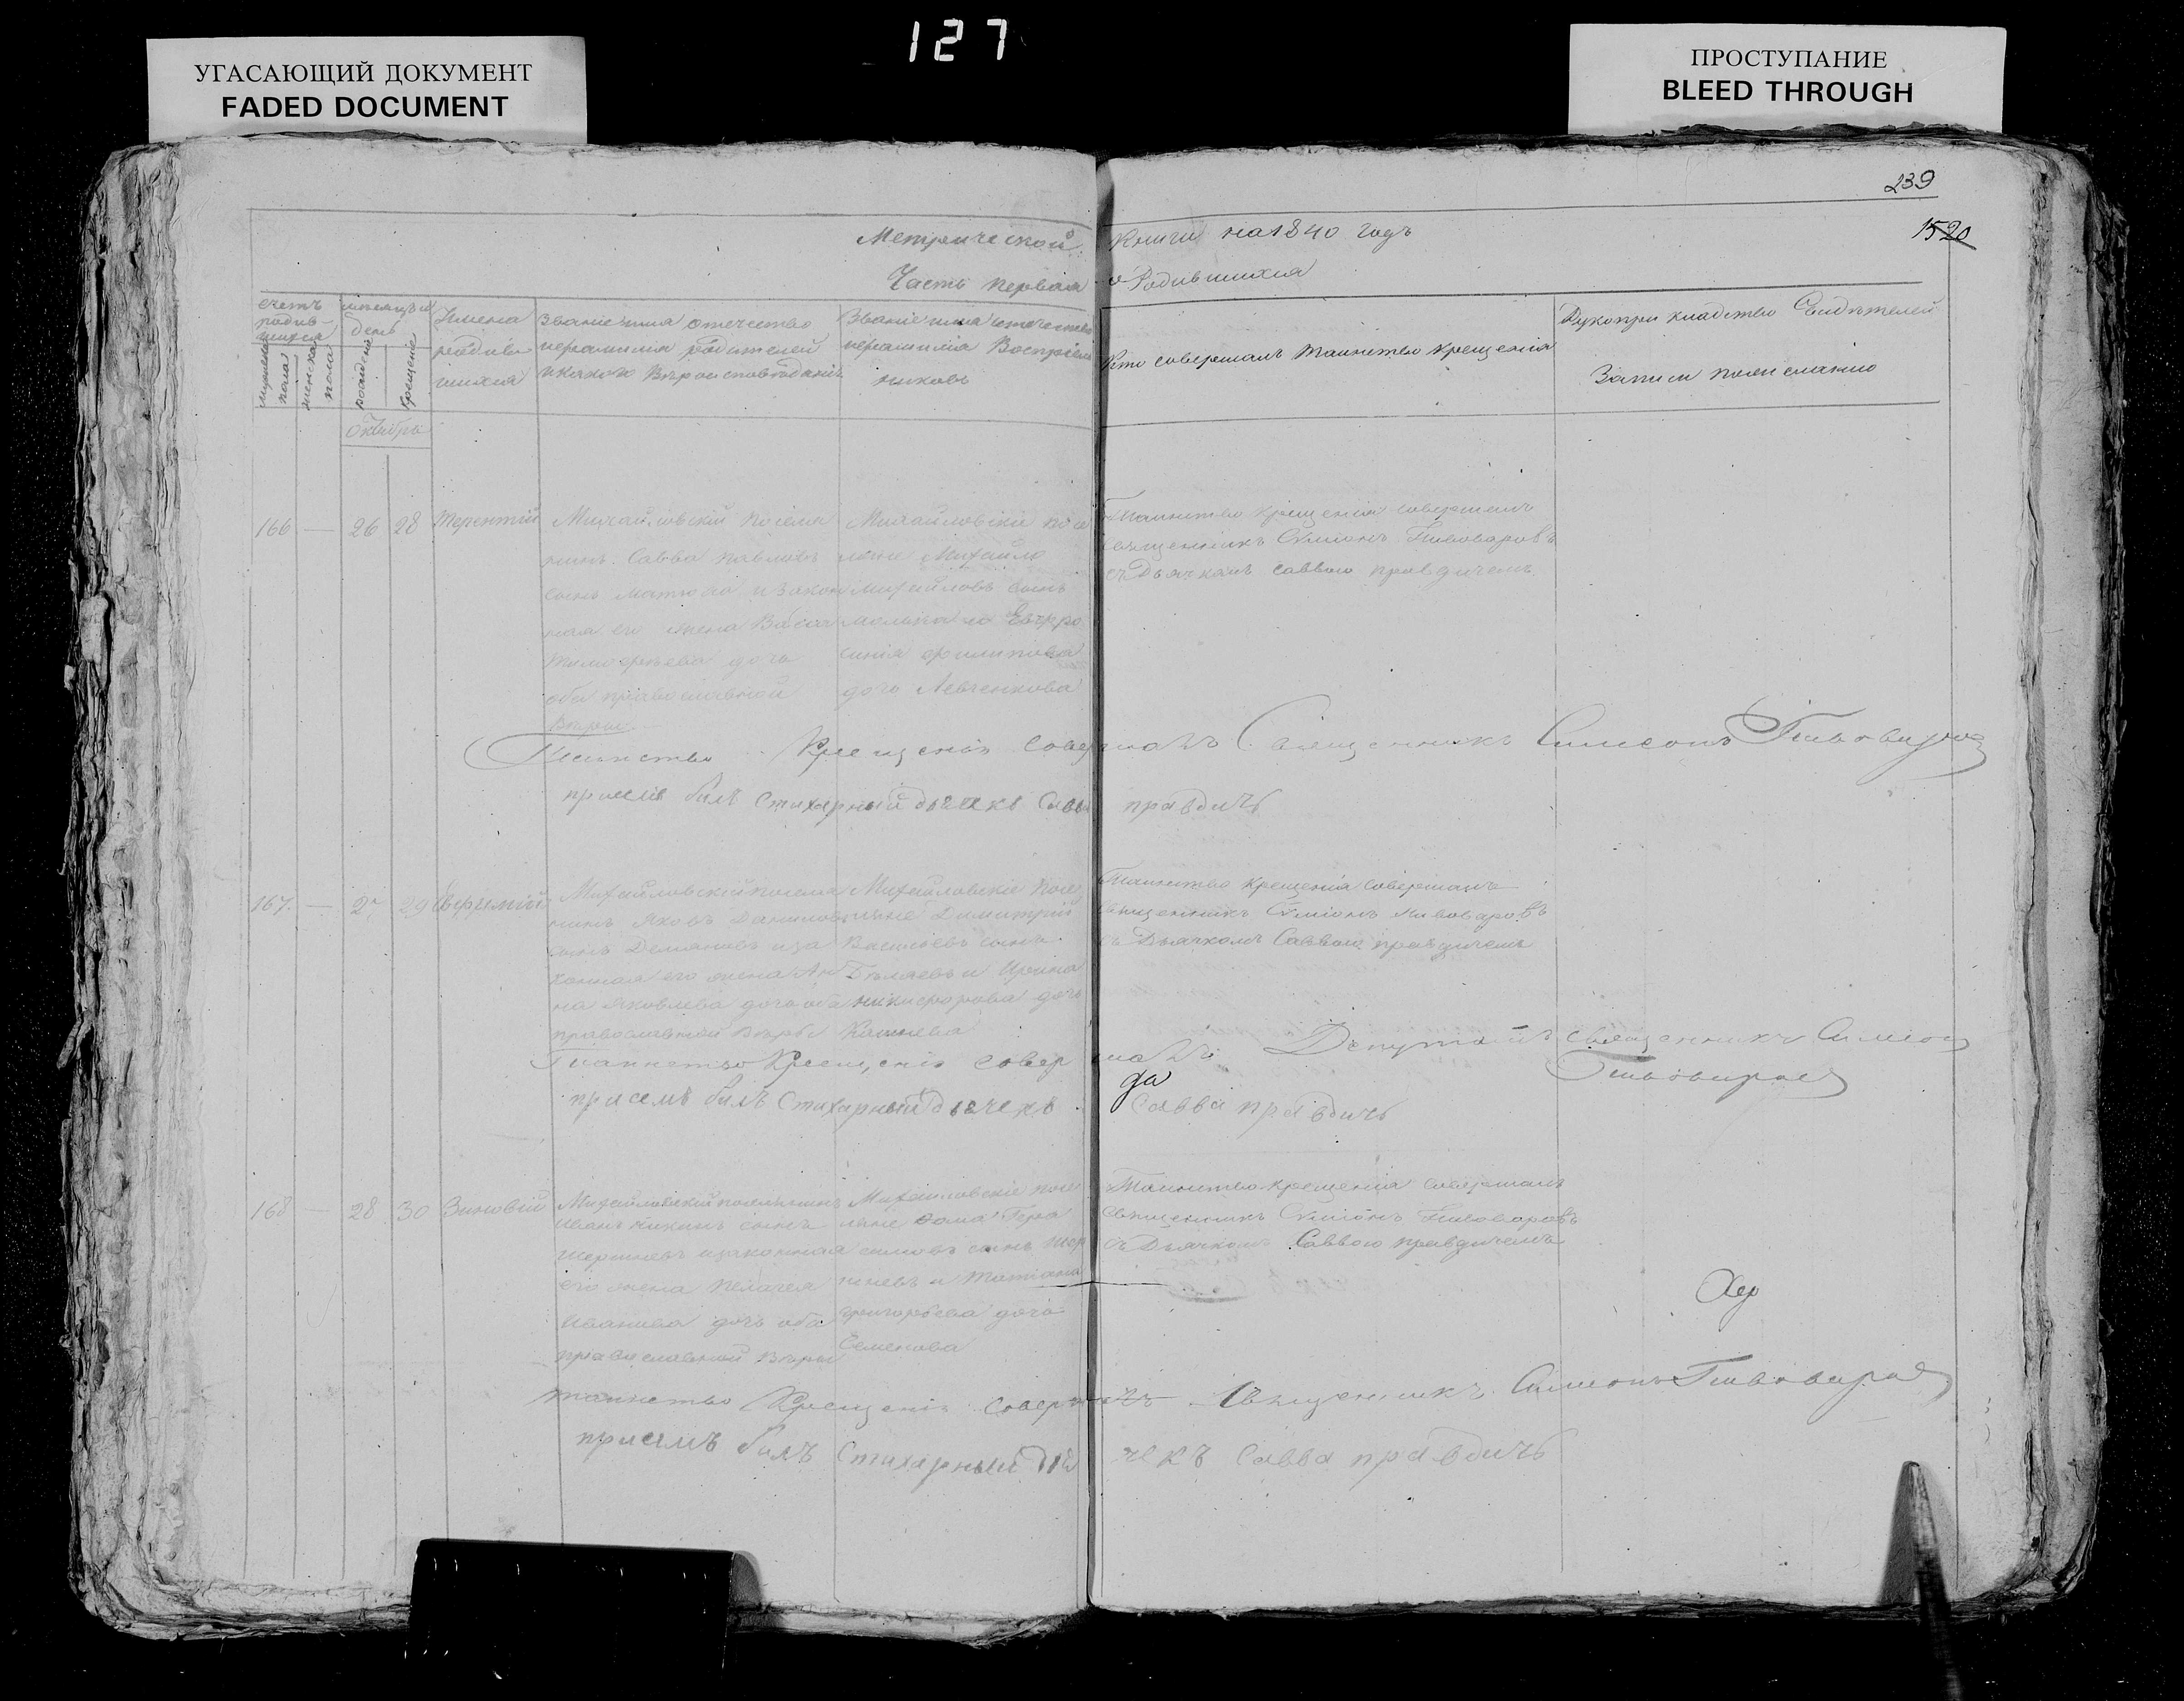 127
УГАСАЮЩИЙ ДОКУМЕНТ
FADED DOCUMENT
ПРОСТУПАНИЕ
BLEED THROUGH
239
1520
Метрической Книги на 1840 годъ
Часть первая о Родившихся
счетъ родившихся
мужеска пола
женска пола
мѣсяцъ и день
рожденія
крещенія
Имена родившихся
Званіе имя отечество и фамилія родителей и какого вѣроисповѣданія
Званіе имя отечество и фамилія Воспріемниковъ
Кто совершалъ таинство крещенія
Рукоприкладство Свидѣтелей Записи по желанію
Октября
166 — 26 28 Терентій
Михайловскій поселянинъ Савва Павловъ сынъ и законная его жена Тимофѣева дочь оба православной Вѣры
Михайловскіе поселяне Михайло Михайловъ сынъ и Евфросинія Филипова дочь Левченкова
Таинство крещенія совершалъ
священникъ Сѵміонъ Пивоваровъ
съ Дьячкомъ Саввою Правдичемъ
Таинство Крещенія Совершалъ Священникъ Симеонъ Пивоваровъ
присемъ билъ Стихарный дьячекъ Савва правдичъ
167. — 27 29 Евфимій
Михайловскій поселянинъ Яковъ Даниловъ сынъ Демяновъ и законная его жена Анна Яковлева дочь оба православной Вѣры
Михайловскіе поселяне Димитрій Васильевъ сынъ Бѣляевъ и Ирина Никифорова дочь
Таинство крещенія совершалъ
священникъ Сѵміонъ Пивоваровъ
съ Дьячкомъ Саввою правдичемъ
Таинство Крещенія совершалъ Депутатъ священникъ Симеонъ
да
Пивоваровъ
присемъ билъ Стихарный дьячекъ Савва правдичъ
168 — 28 30 Зиновій
Михайловскій поселянинъ Иванъ сынъ и законная его жена Пелагея Иванова дочь оба православной вѣры
Михайловскіе поселяне Фома Герасимовъ сынъ и Татіана григорьева дочь Семенова
Таинство крещенія совершалъ
священникъ Сѵміонъ Пивоваровъ
съ Дьячкомъ Саввою правдичемъ
таинство Крещенія совершалъ Священникъ Симеонъ Пивоваровъ
присемъ билъ Стихарный дьячекъ Савва правдичъ